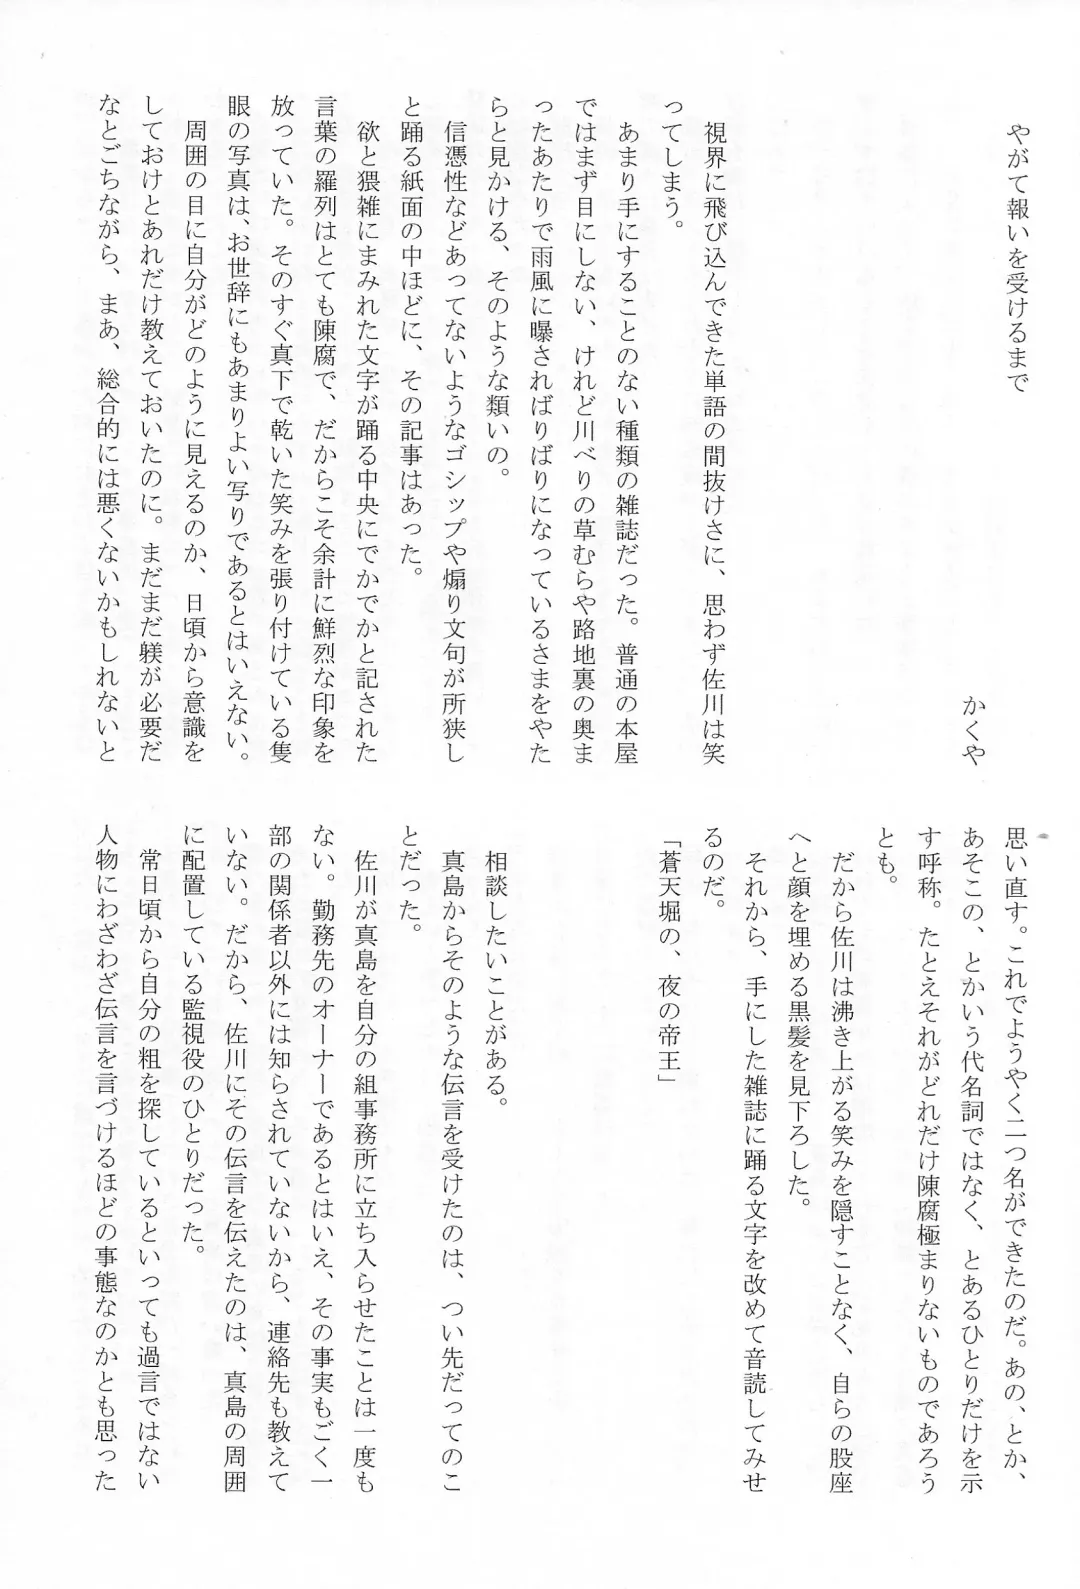 やがて報いを受けるまで
かくや
視界に飛び込んできた単語の間抜けさに、思わず佐川は笑
ってしまう。
あまり手にすることのない種類の雑誌だった。普通の本屋
ではまず目にしない、けれど川べりの草むらや路地裏の奥ま
ったあたりで雨風に曝さればりばりになっているさまをやた
らと見かける、そのような類いの。
信憑性などあってないようなゴシップや煽り文句が所狭し
と踊る紙面の中ほどに、その記事はあった。
欲と猥雑にまみれた文字が踊る中央にでかでかと記された
言葉の羅列はとても陳腐で、だからこそ余計に鮮烈な印象を
放っていた。そのすぐ真下で乾いた笑みを張り付けている隻
眼の写真は、お世辞にもあまりよい写りであるとはいえない。
周囲の目に自分がどのように見えるのか、日頃から意識を
しておけとあれだけ教えておいたのに。まだまだ躾が必要だ
なとごちながら、まあ、総合的には悪くないかもしれないと
思い直す。これでようやく二つ名ができたのだ。あの、とか、
あそこの、とかいう代名詞ではなく、とあるひとりだけを示
す呼称。たとえそれがどれだけ陳腐極まりないものであろう
とも。
だから佐川は沸き上がる笑みを隠すことなく、自らの股座
へと顔を埋める黒髪を見下ろした。
それから、手にした雑誌に踊る文字を改めて音読してみせ
るのだ。
「蒼天堀の、夜の帝王」
相談したいことがある。
真島からそのような伝言を受けたのは、つい先だってのこ
とだった。
佐川が真島を自分の組事務所に立ち入らせたことは一度も
ない。勤務先のオーナーであるとはいえ、その事実もごく一
部の関係者以外には知らされていないから、連絡先も教えて
いない。だから、佐川にその伝言を伝えたのは、真島の周囲
に配置している監視役のひとりだった。
常日頃から自分の粗を探しているといっても過言ではない
人物にわざわざ伝言を言づけるほどの事態なのかとも思った